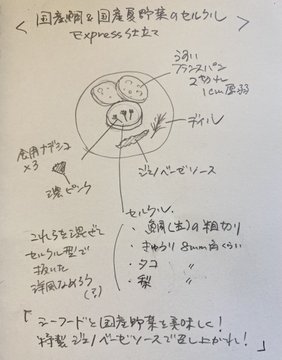 ＜国産鯛&国産夏野菜のセルクル
Express仕立て＞
うすい
フランスパン
2切れ
1cm厚弱
ディル
ジェノベーゼソース
食用ナデシコ
×3
濃ピンク
セルクル
・鯛(生)の粗切り
・きゅうり 8mm角くらい
・タコ 〃
・梨 〃
これらを混ぜて
セルクル型で
抜いた
洋風なめろう
(?)
「シーフードと国産野菜を美味しく!
特製ジェノベーゼソースで召し上がれ!」